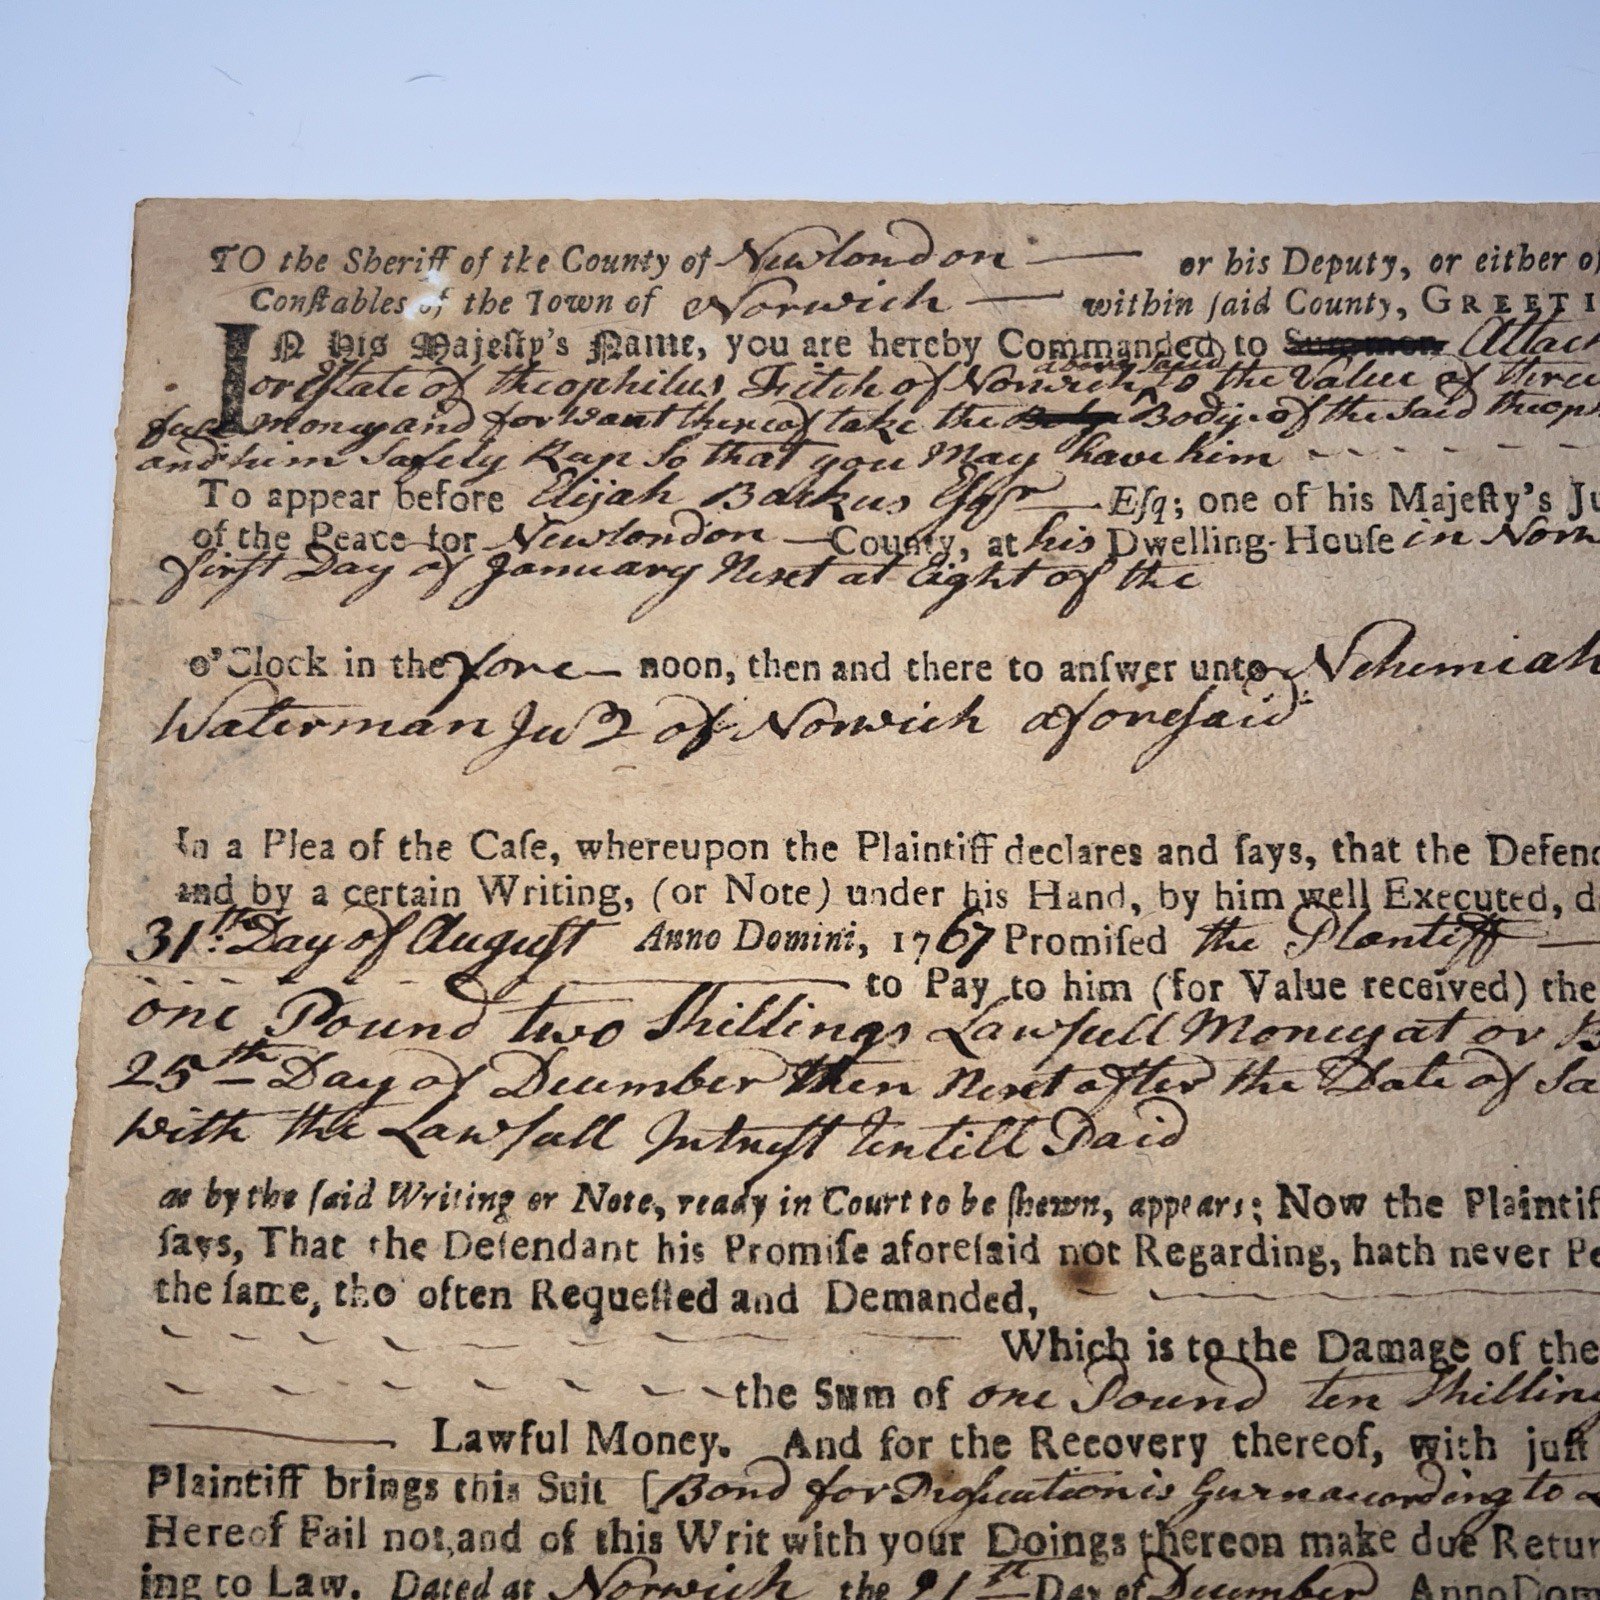 TO the Sheriff of the County of Newlondon — or his Deputy, or either of
Conſtables of the Town of Norwich — within ſaid County, GREETI
IN His Majeſty's Name, you are hereby Commanded to Summon Attach
above said
or Eſtate of theophilus Fitch of Norwich, to the Value of three
money and for want thereof take the Body of the Said theop
and him Safely Keep So that you May have him - - - - - -
To appear before Elijah Backus Eſqr — Eſq; one of his Majeſty's Ju
of the Peace for Newlondon — County, at his Dwelling-Houſe in Norw
first Day of January Next at Eight of the
o'Clock in the fore — noon, then and there to anſwer unto Nehemiah
Waterman Junr of Norwich aforeſaid
In a Plea of the Caſe, whereupon the Plaintiff declares and ſays, that the Defend
and by a certain Writing, (or Note) under his Hand, by him well Executed, d
31th Day of Auguſt Anno Domini, 1767 Promiſed the Plantiff —
to Pay to him (for Value received) the
one Pound two Shillings Lawfull Money at or B
25th Day of December then Next after the Date of Sa
with the Lawfull Intreſt Untill Paid
as by the ſaid Writing or Note, ready in Court to be ſhewn, appears; Now the Plaintiff
ſays, That the Defendant his Promiſe aforeſaid not Regarding, hath never Pe
the ſame, tho' often Requeſted and Demanded,
Which is to the Damage of the
the Sum of one Pound ten Shilling
Lawful Money. And for the Recovery thereof, with juſt
Plaintiff brings this Suit (Bond for Proſecution is Given according to L
Hereof Fail not, and of this Writ with your Doings thereon make due Retur
ing to Law. Dated at Norwich the 21th Day of December Anno Dom